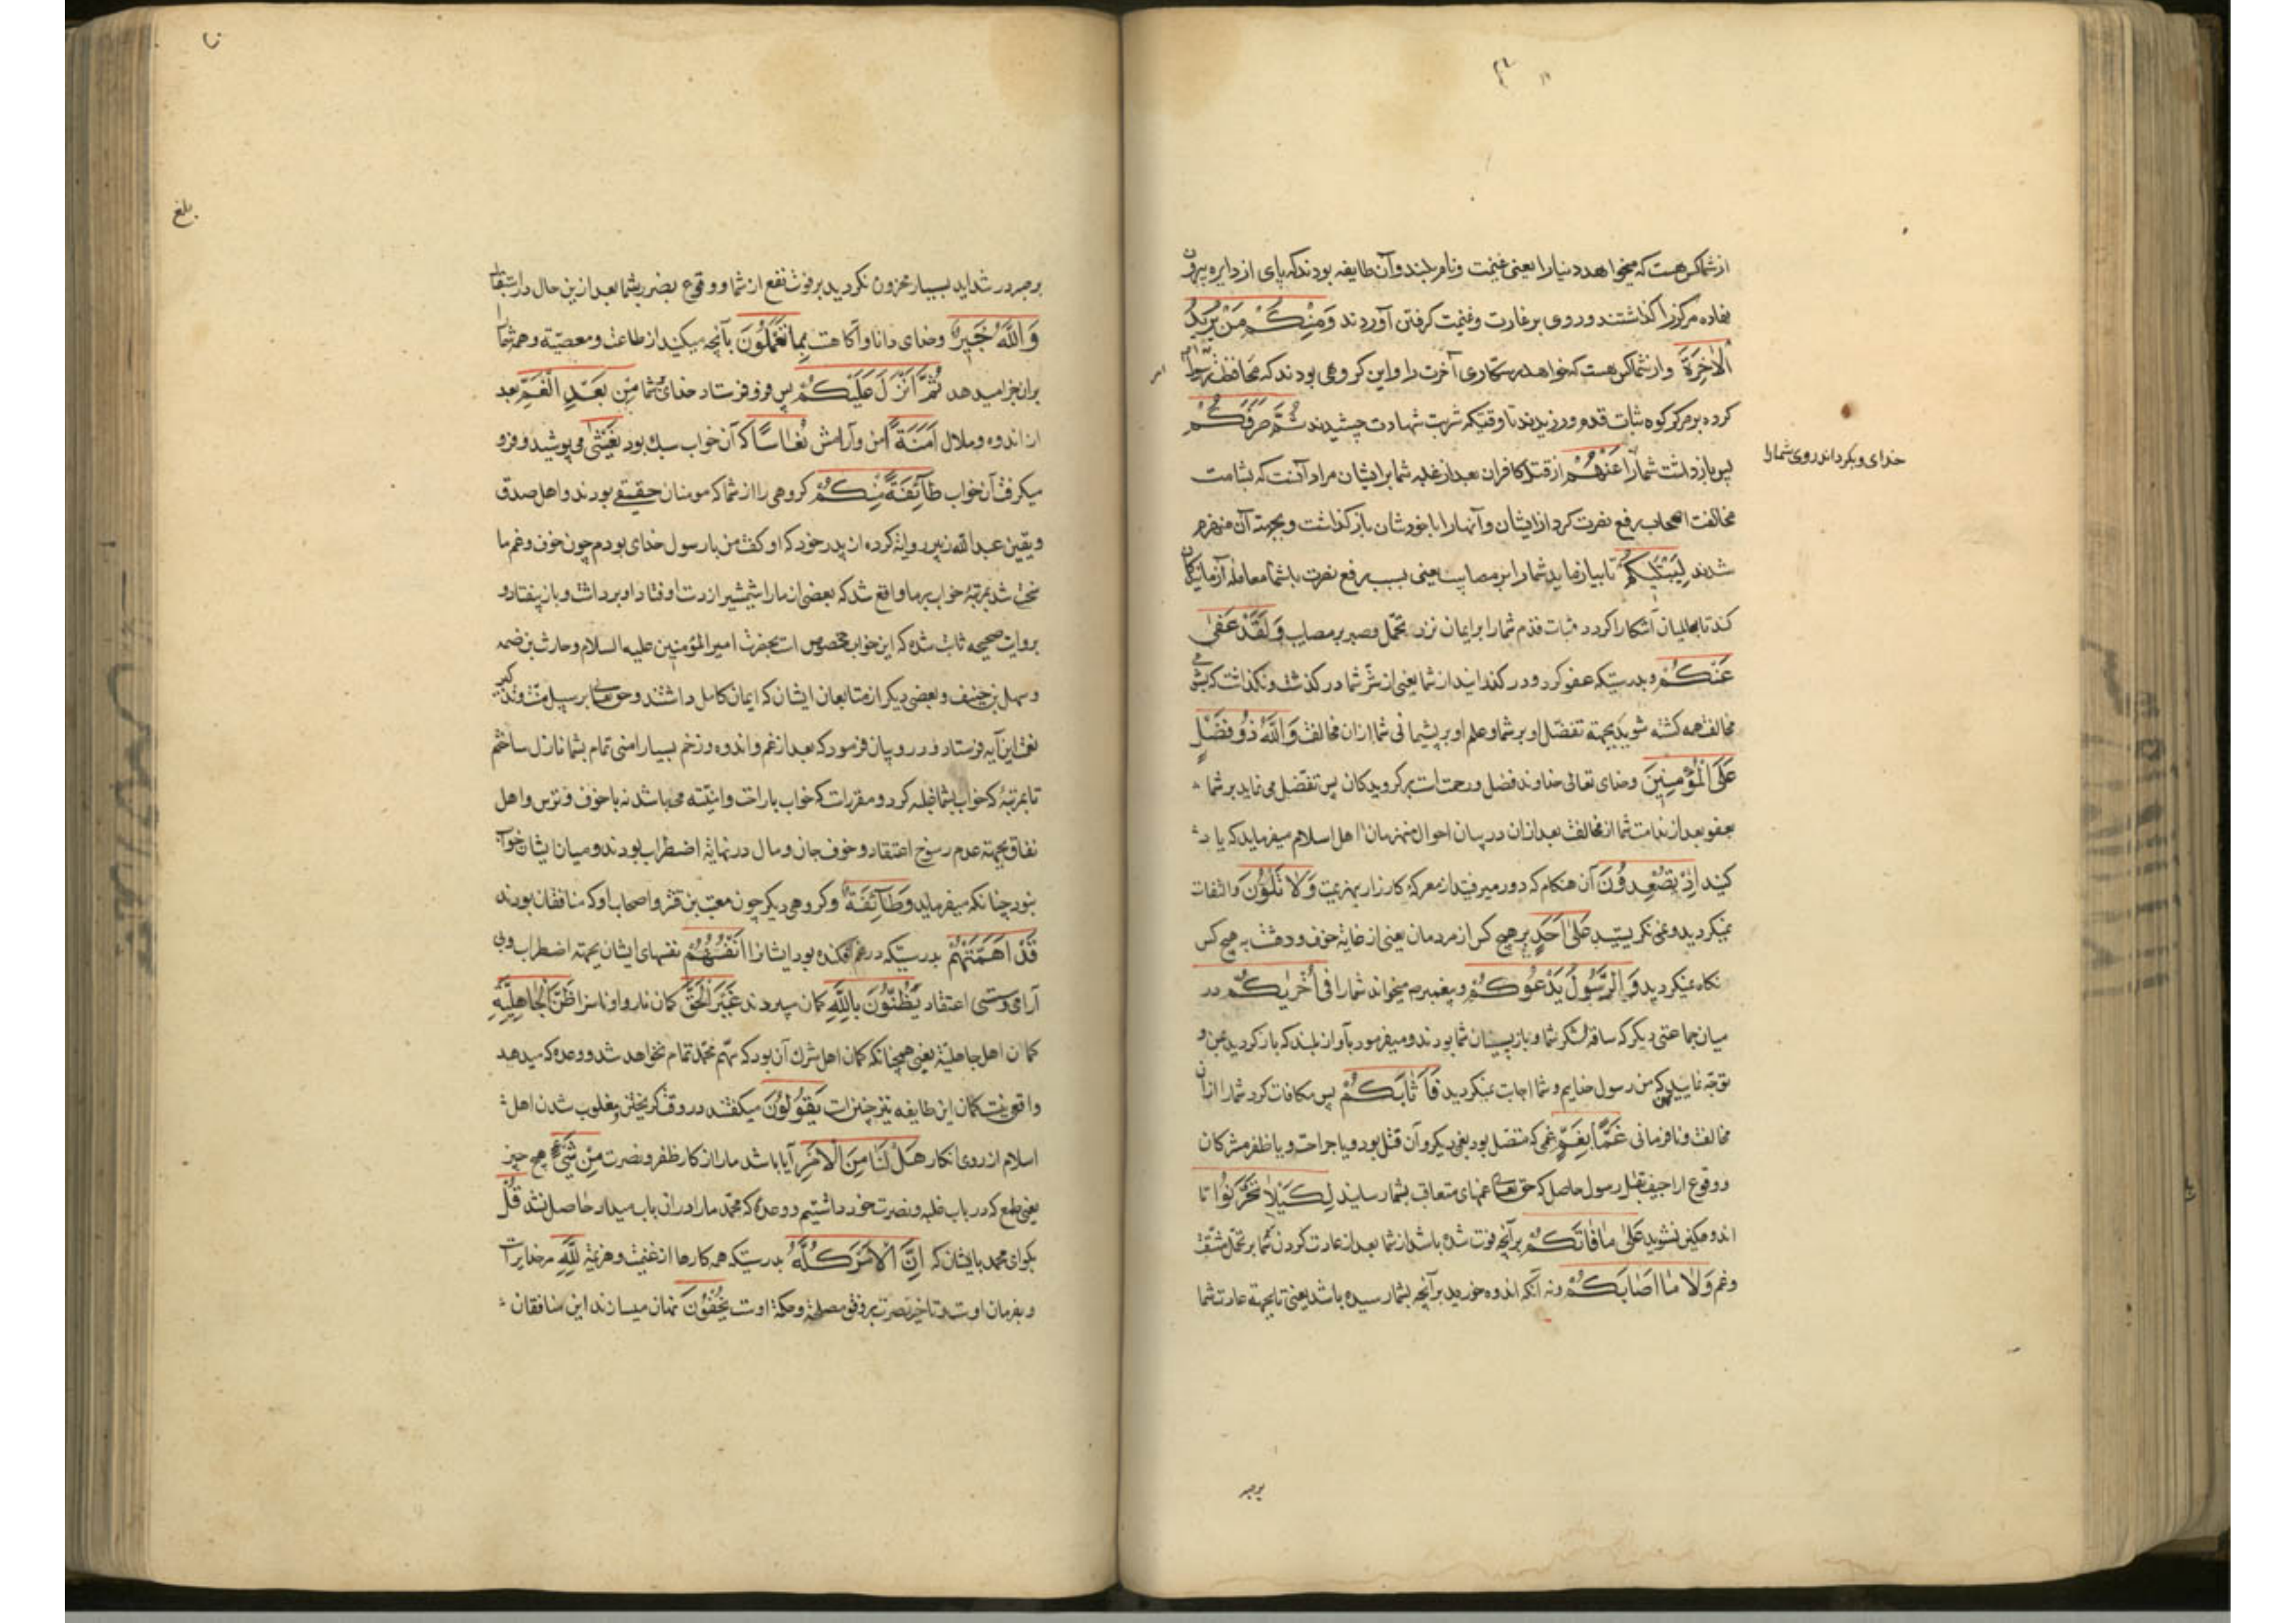 از شما کس هست که میخواهد دنیا را یعنی غنیمت و نام بلند و آن طایفه بودند که پای از دایره بیرون
نهاده مرکز را گذاشتند و روی بر غارت و غنیمت گرفتن آوردند وَمِنْكُمْ مَنْ يُرِيدُ
الْاٰخِرَةَ و از شما کس هست که خواهد رستکاری آخرت را و این کروهی بودند که محافظت
کرده بر مرکز کوه ثبات قدم ورزیدند تا وقتیکه شربت شهادت چشیدند ثُمَّ صَرَفَكُمْ
خدای و بکرداند روی شما را
پس باز داشت شما را عَنْهُمْ از قتل کافران بعد از غلبه شما بر ایشان مراد آنست که بشامت
مخالفت اصحاب رفع نصرت کرد از ایشان و آنها را با خودشان باز کذاشت و بجهته آن منهزم
شدند لِيَبْتَلِيَكُمْ تا بیازماید شما را بر مصایب یعنی بسبب رفع نصرت با شما معامله آزمایندکان
کند تا بحالیان آشکارا کردد ثبات قدم شما را بر ایمان نزد تحمل و صبر بر مصایب وَلَقَدْ عَفٰى
عَنْكُمْ و بدرستیکه عفو کرد و در کذرانید از شما یعنی از شر شما در کذشت و نکذاشت که
مخالفت همه کشته شوید بجهته تفضل او بر شما و علم او بر پشیمانی شما از ان مخالفت وَاللّٰهُ ذُو فَضْلٍ
عَلَى الْمُؤْمِنِينَ و خدای تعالی خداوند فضل و رحمت است بر کرویدکان پس تفضل می نماید بر شما
بعفو بعد از ندامت شما از مخالفت بعد از ان در بیان احوال منهزمان اهل اسلام میفرماید که یاد
کنید اِذْ تُصْعِدُونَ آن هنکام که دور میرفتید از معرکه کارزار بهزیمت وَلَا تَلْوُونَ و التفات
نمیکردید و نمی نکریستید عَلٰى اَحَدٍ بر هیچ کس از مردمان یعنی از غایة خوف و دهشت به هیچ کس
نکاه نمیکردید وَالرَّسُولُ يَدْعُوكُمْ و پیغمبرم میخواند شما را فِى اُخْرٰيكُمْ در
میان جماعتی دیکر که ساقه لشکر شما و باز پسینان شما بودند و میفرمود بآواز بلند که باز کردید بمن و
توجه نمایید که من رسول خدایم و شما اجابت نمیکردید فَاَثَابَكُمْ پس مکافات کرد شما را از ان
مخالفت و نافرمانی غَمًّا بِغَمٍّ غمی که متصل بود بغمی دیکر و آن قتل بود و یا جراحت و یا ظفر مشرکان
و وقوع اراجیف بقتل رسول حاصل که حق تعالی غمهای متعاقب بشما رسانید لِكَيْلَا تَحْزَنُوا تا
اندوهکین نشوید عَلٰى مَا فَاتَكُمْ بر آنچه فوت شده باشد از شما بعد از عادت کردن شما بر تحمل مشقت
و غم وَلَا مَا اَصَابَكُمْ و نه آنکه اندوه خورید بر آنچه بشما رسیده باشد یعنی تا بجهته عادت شما
برصبر
بلغ
بر صبر در شداید بسیار محزون نکردید بر فوت نفع از شما و وقوع بضرر بشما بعد از ین حال
وَاللّٰهُ خَبِيرٌ و خدای دانا و آکاهست بِمَا تَعْمَلُونَ بآنچه میکنید از طاعت و معصیة و همه شما را
بران جزا میدهد ثُمَّ اَنْزَلَ عَلَيْكُمْ پس فرو فرستاد خدای بشما مِنْ بَعْدِ الْغَمِّ بعد
از اندوه و ملال اَمَنَةً امن و آرامش نُعَاسًا که آن خواب سبک بود يَغْشٰى می پوشید و فرو
میکرفت آن خواب طَآئِفَةً مِنْكُمْ کروهی را از شما که مومنان حقیقی بودند و اهل صدق
و یقین عبد الله زبیر روایة کرده از پدر خود که او کفت من با رسول خدای بودم چون خوف و غم ما
سخت شد بمرتبه خواب بر ما واقع شد که بعضی از ما را شمشیر از دست اوفتاد او برداشت و باز بیفتاد و
بروایت صحیحه ثابت شده که این خواب مخصوص است بحضرت امیر المؤمنین علیه السلام و حارث بن ضمه
و سهل بن حنیف و بعضی دیکر از متابعان ایشان که ایمان کامل داشتند و حق تعالی بر سبیل منت و تذکیر
نعمت این آیه فرستاد و در و بیان فرمود که بعد از غم و اندوه و زخم بسیار امنی تمام بشما نازل ساختم
تا بمرتبه که خواب بشما غلبه کرد و مقررات که خواب با راحت و امنیّت می باشد نه با خوف و ترس و اهل
نفاق بجهته عدم رسوخ اعتقاد و خوف جان و مال در نهایة اضطراب بودند و میان ایشان خواب
نبود چنانکه میفرماید وَطَآئِفَةٌ و کروهی دیکر چون معتب بن قشر و اصحاب او که منافقان بودند
قَدْ اَهَمَّتْهُمْ بدرستیکه در غم افکنده بود ایشانرا اَنْفُسُهُمْ نفسهای ایشان بجهته اضطراب و بی
آرامی و سستی اعتقاد يَظُنُّونَ بِاللّٰهِ کمان میبردند غَيْرَ الْحَقِّ کمان ناروا و ناسزا ظَنَّ الْجَاهِلِيَّةِ
کمان اهل جاهلیّة یعنی همچنانکه کمان اهل شرک آن بود که مهم محمد تمام نخواهد شد و وعده که میدهد
واقعی نیست کمان این طایفه نیز چنین است يَقُولُونَ میکفتند در وقت کریختن و مغلوب شدن اهل
اسلام از روی انکار هَلْ لَنَا مِنَ الْاَمْرِ آیا باشد ما را از کار ظفر و نصرت مِنْ شَىْءٍ هیچ چیز
یعنی طمع که در باب غلبه و نصرت خود داشتیم و وعده که محمد ما را در ان باب میداد حاصل نشد قُلْ
بکو ای محمد بایشان که اِنَّ الْاَمْرَ كُلَّهُ بدرستیکه همه کارها از غنیمت و هزیمة لِلّٰهِ مر خدایراست
و بفرمان اوست و تاخیر نصرت بر وفق مصلحة و حکمة اوست يُخْفُونَ نهان میسازند این منافقان